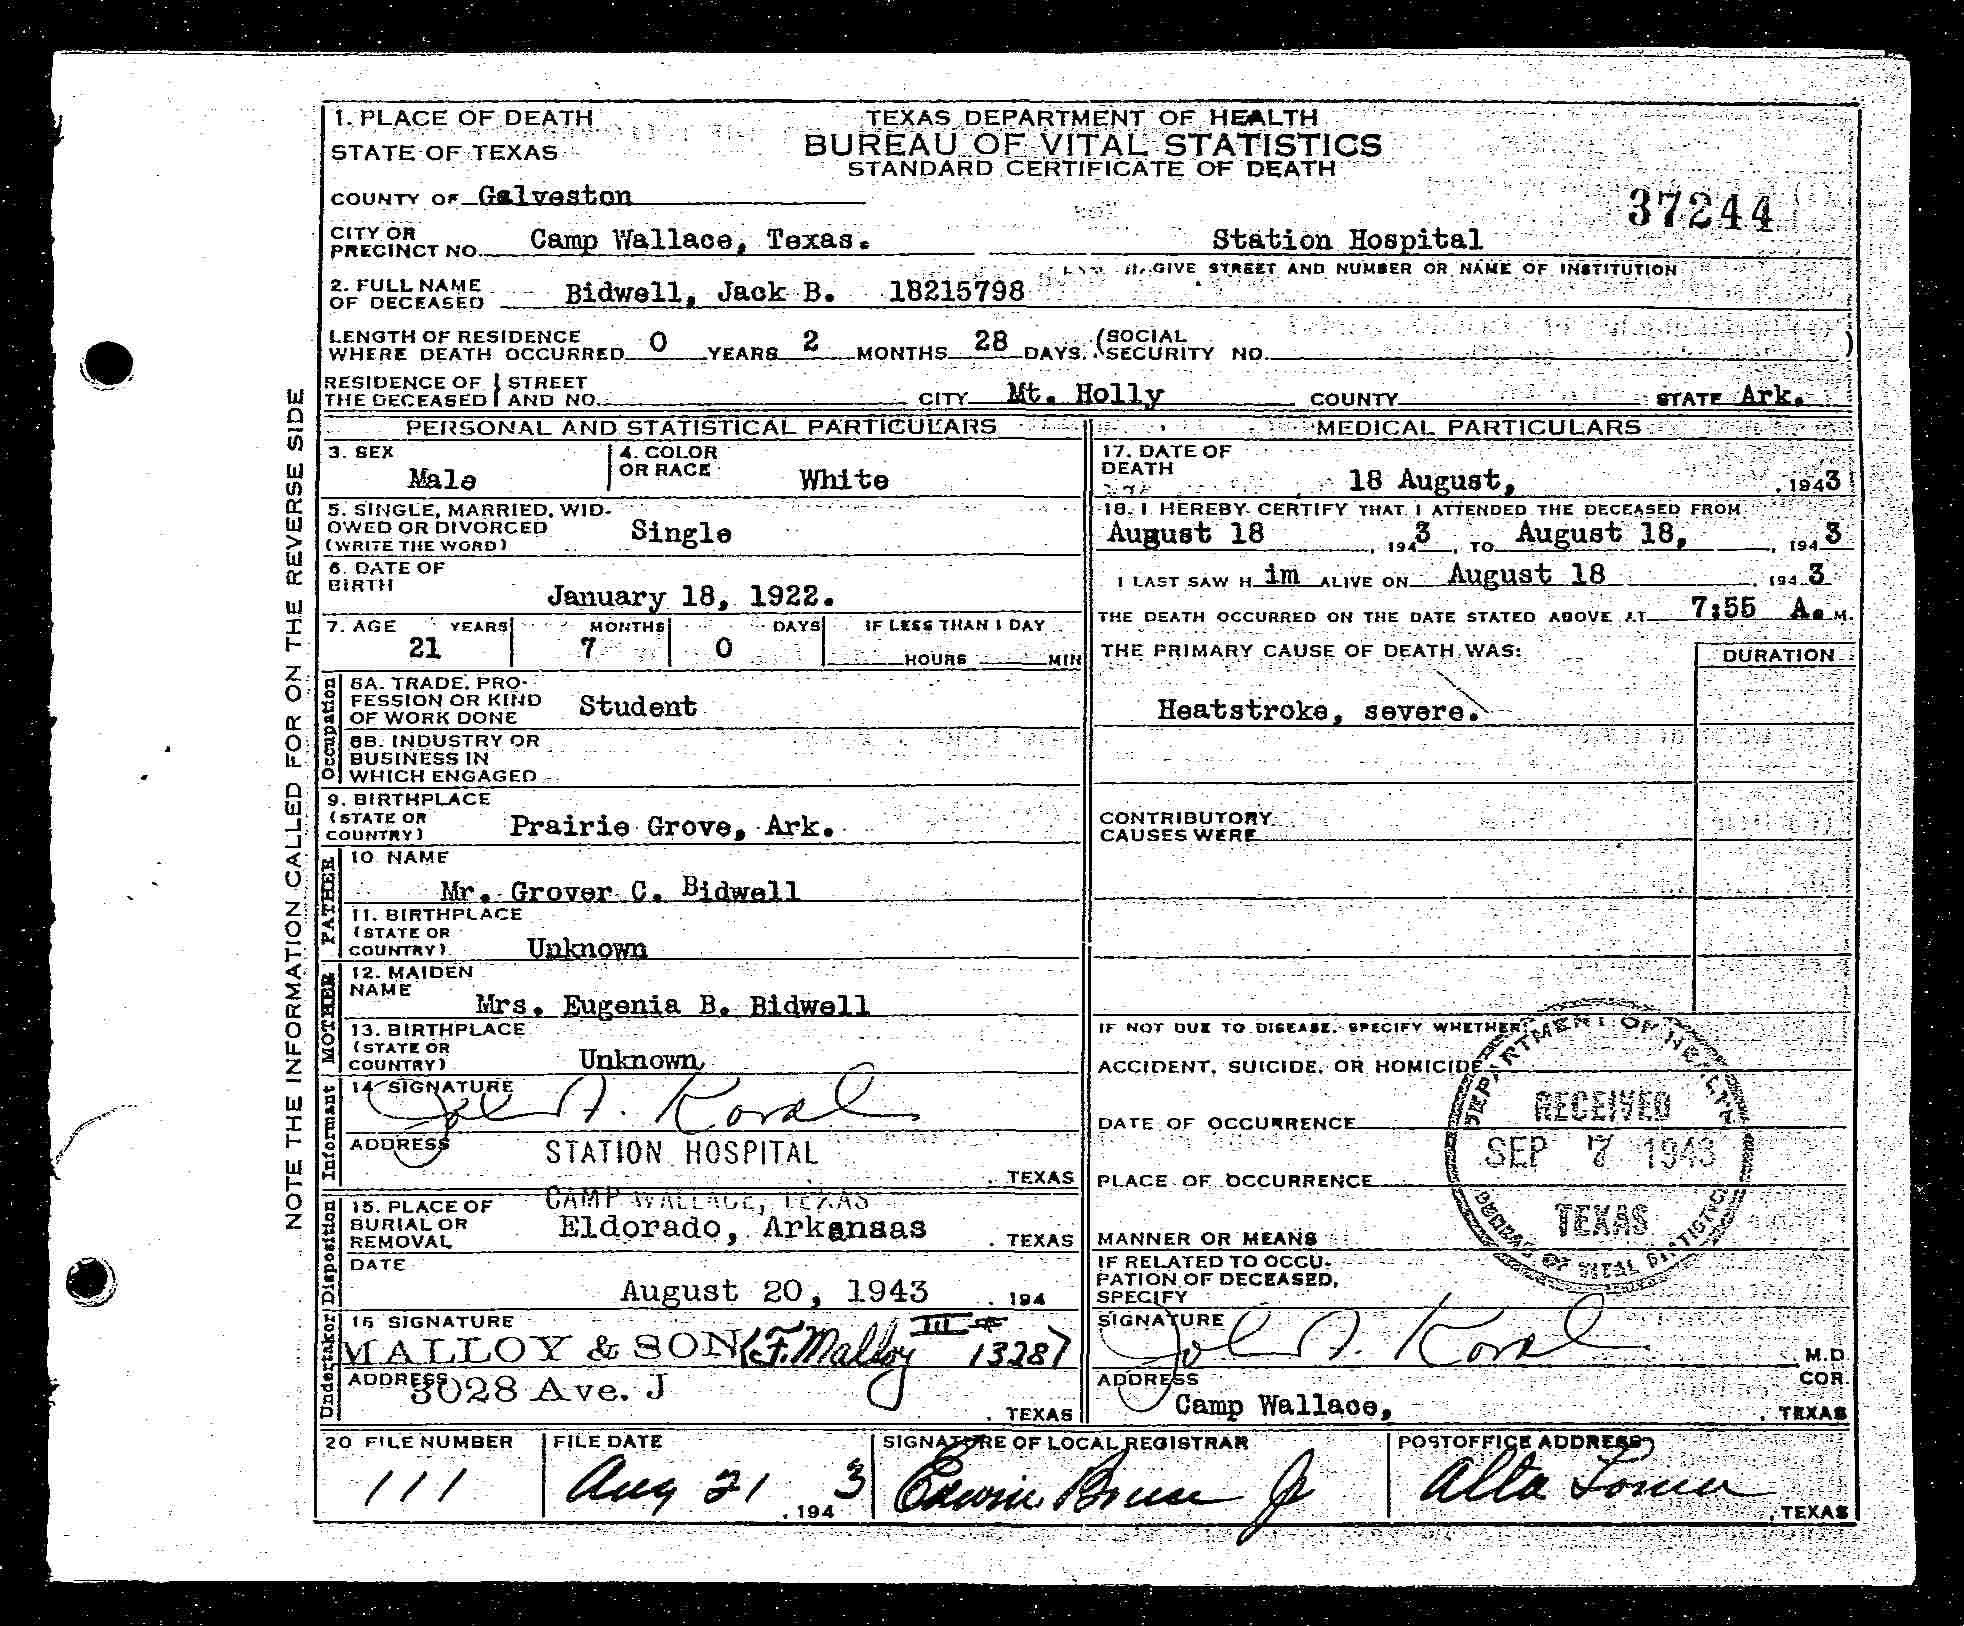 1. PLACE OF DEATH
STATE OF TEXAS
TEXAS DEPARTMENT OF HEALTH
BUREAU OF VITAL STATISTICS
STANDARD CERTIFICATE OF DEATH
COUNTY OF Galveston
37244
CITY OR PRECINCT NO. Camp Wallace, Texas. Station Hospital
GIVE STREET AND NUMBER OR NAME OF INSTITUTION
2. FULL NAME OF DECEASED Bidwell, Jack B. 18215798
LENGTH OF RESIDENCE WHERE DEATH OCCURRED 0 YEARS 2 MONTHS 28 DAYS. (SOCIAL SECURITY NO. )
RESIDENCE OF THE DECEASED STREET AND NO. CITY Mt. Holly COUNTY STATE Ark.
PERSONAL AND STATISTICAL PARTICULARS
3. SEX Male
4. COLOR OR RACE White
5. SINGLE, MARRIED, WIDOWED OR DIVORCED (WRITE THE WORD) Single
6. DATE OF BIRTH January 18, 1922.
7. AGE YEARS MONTHS DAYS IF LESS THAN 1 DAY
21 7 0 HOURS MIN
Occupation
8A. TRADE, PROFESSION OR KIND OF WORK DONE Student
8B. INDUSTRY OR BUSINESS IN WHICH ENGAGED
9. BIRTHPLACE (STATE OR COUNTRY) Prairie Grove, Ark.
FATHER
10 NAME
Mr. Grover C. Bidwell
11. BIRTHPLACE (STATE OR COUNTRY) Unknown
MOTHER
12. MAIDEN NAME Mrs. Eugenia B. Bidwell
13. BIRTHPLACE (STATE OR COUNTRY) Unknown
Informant
14 SIGNATURE John A. Koval
ADDRESS STATION HOSPITAL
TEXAS
CAMP WALLACE, TEXAS
Disposition
15. PLACE OF BURIAL OR REMOVAL Eldorado, Arkansas . TEXAS
DATE
August 20, 1943 . 194
Undertaker
16 SIGNATURE
MALLOY & SON (F. Malloy III # 1328)
ADDRESS 3028 Ave. J
. TEXAS
MEDICAL PARTICULARS
17. DATE OF DEATH 18 August, , 1943
18. I HEREBY CERTIFY THAT I ATTENDED THE DECEASED FROM
August 18 , 1943, TO August 18, , 1943
I LAST SAW H im ALIVE ON August 18 , 1943
THE DEATH OCCURRED ON THE DATE STATED ABOVE AT 7:55 A. M.
THE PRIMARY CAUSE OF DEATH WAS: DURATION
Heatstroke, severe.
CONTRIBUTORY CAUSES WERE
IF NOT DUE TO DISEASE, SPECIFY WHETHER
ACCIDENT, SUICIDE, OR HOMICIDE
DATE OF OCCURRENCE
PLACE OF OCCURRENCE
MANNER OR MEANS
IF RELATED TO OCCUPATION OF DECEASED, SPECIFY
DEPARTMENT OF HEALTH
RECEIVED
SEP 7 1943
TEXAS
BUREAU OF VITAL STATISTICS
SIGNATURE John A. Koval
M.D
ADDRESS COR.
Camp Wallace, , TEXAS
20 FILE NUMBER FILE DATE SIGNATURE OF LOCAL REGISTRAR POSTOFFICE ADDRESS
111 Aug 21 , 1943 Edwin Bruse Jr Alta Loma , TEXAS
NOTE THE INFORMATION CALLED FOR ON THE REVERSE SIDE